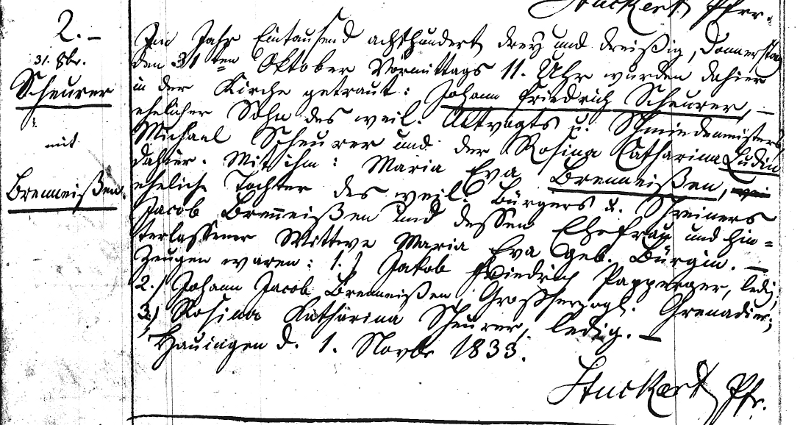 Stuckert Pfr.
2.–
31. Okr.
Scheurer
mit
Brenneißen.
Im Jahr Eintausend achthundert drey und dreißig, Donnerstag
den 31ten Oktober Vormittags 11. Uhr wurden dahier
in der Kirche getraut: Johann Friedrich Scheurer, –
ehelicher Sohn des weil. Altvogts u. Schmiedemeisters
Michael Scheurer und der Rosina Catharina Ludin
dahier. Mit ihm: Maria Eva Brenneißen,
eheliche Tochter des weil. Bürgers u. Schreiners
Jacob Breñeißen und dessen Ehefrau und hin=
terlassener Wittwe Maria Eva geb. Bürgin. –
Zeugen waren: 1.) Jakob Friedrich Papperger, ledi;
2. Johann Jacob Brenneißen Großherzogl. Grenadier;
3.) Rosina Katharina Scheurer, ledig. –
Hauingen d. 1. Novbr 1833.
Stuckert Pfr.